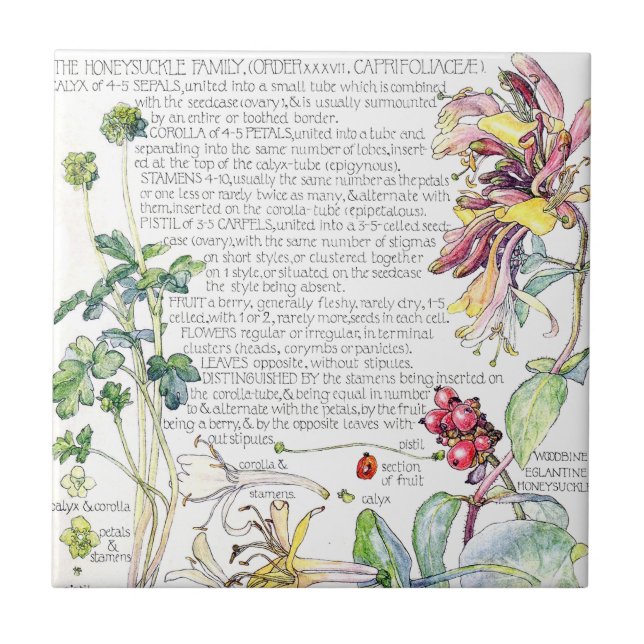 THE HONEYSUCKLE FAMILY. (ORDER XXXVII. CAPRIFOLIACEÆ).
CALYX OF 4-5 SEPALS, united into a small tube which is combined
with the seedcase (ovary), & is usually surmounted
by an entire or toothed border.
COROLLA OF 4-5 PETALS, united into a tube and
separating into the same number of lobes, insert-
ed at the top of the calyx-tube (epigynous).
STAMENS 4-10, usually the same number as the petals
or one less or rarely twice as many, & alternate with
them, inserted on the corolla-tube (epipetalous).
PISTIL OF 3-5 CARPELS, united into a 3-5-celled seed-
case (ovary), with the same number of stigmas
on short styles, or clustered together
on 1 style, or situated on the seedcase
the style being absent.
FRUIT a berry, generally fleshy, rarely dry, 1-5
celled, with 1 or 2, rarely more, seeds in each cell.
FLOWERS regular or irregular, in terminal
clusters (heads, corymbs or panicles).
LEAVES opposite, without stipules.
DISTINGUISHED BY the stamens being inserted on
the corolla-tube, & being equal in number
to & alternate with the petals, by the fruit
being a berry, & by the opposite leaves with-
out stipules.
pistil
corolla &
stamens.
section
of fruit
calyx
WOODBINE
EGLANTINE
HONEYSUCKLE
calyx & corolla
petals
&
stamens